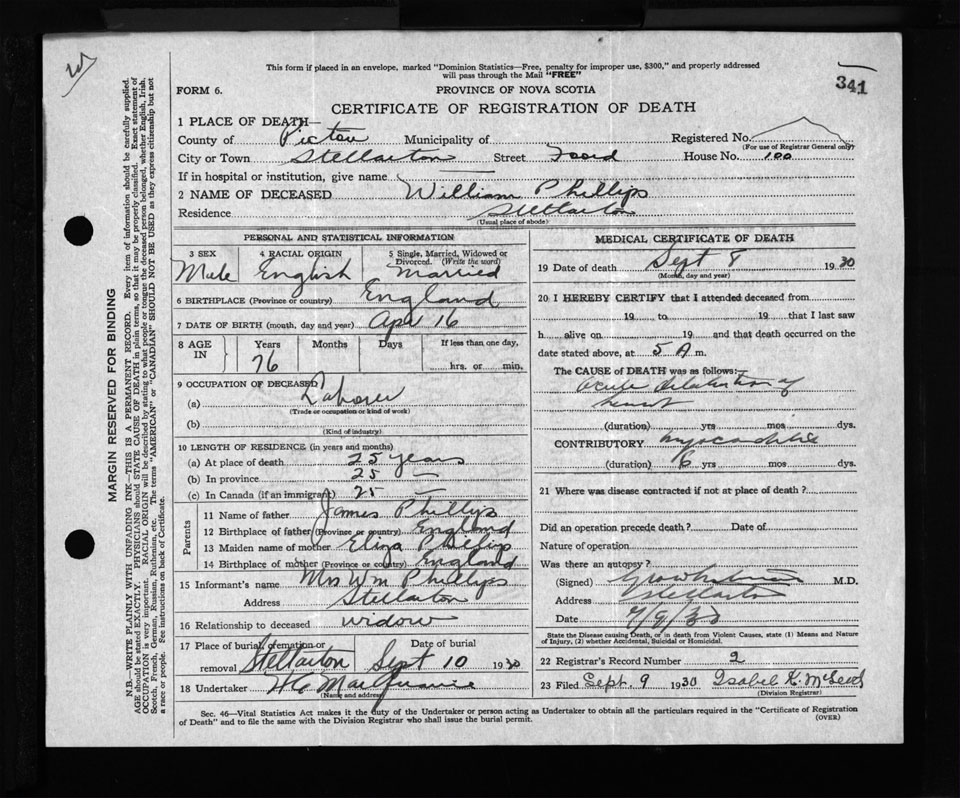 341
This form if placed in an envelope, marked "Dominion Statistics—Free, penalty for improper use, $300," and properly addressed
will pass through the Mail "FREE"
FORM 6.
PROVINCE OF NOVA SCOTIA
CERTIFICATE OF REGISTRATION OF DEATH
1 PLACE OF DEATH—
County of Pictou Municipality of Registered No.
(For use of Registrar General only)
City or Town Stellarton Street Foord House No. 100
If in hospital or institution, give name
2 NAME OF DECEASED William Phillips
Residence Stellarton
(Usual place of abode)
PERSONAL AND STATISTICAL INFORMATION
3 SEX 4 RACIAL ORIGIN 5 Single, Married, Widowed or
Divorced. (Write the word)
Male English Married
6 BIRTHPLACE (Province or country) England
7 DATE OF BIRTH (month, day and year) Apr 16
8 AGE IN Years Months Days If less than one day,
76 hrs. or min.
9 OCCUPATION OF DECEASED
(a) Laborer
(Trade or occupation or kind of work)
(b)
(Kind of industry)
10 LENGTH OF RESIDENCE (in years and months)
(a) At place of death 25 years
(b) In province 25 —
(c) In Canada (if an immigrant) 25 —
Parents
11 Name of father James Phillips
12 Birthplace of father (Province or country) England
13 Maiden name of mother Eliza Phillips
14 Birthplace of mother (Province or country) England
15 Informant's name Mrs Wm Phillips
Address Stellarton
16 Relationship to deceased widow
17 Place of burial, cremation or removal Stellarton Date of burial Sept 10 1930
18 Undertaker H C
(Name and address)
MEDICAL CERTIFICATE OF DEATH
19 Date of death Sept 8 1930
(Month, day and year)
20 I HEREBY CERTIFY that I attended deceased from
19 to 19 that I last saw
h alive on 19 and that death occurred on the
date stated above, at 5 A m.
The CAUSE of DEATH was as follows:—
Acute dilatation of
heart
(duration) yrs mos dys.
CONTRIBUTORY
(duration) 6 yrs mos dys.
21 Where was disease contracted if not at place of death?
Did an operation precede death? Date of
Nature of operation
Was there an autopsy?
(Signed) M.D.
Address Stellarton
Date 9/9/30
State the Disease causing Death, or in death from Violent Causes, state (1) Means and Nature
of Injury, (2) whether Accidental, Suicidal or Homicidal.
22 Registrar's Record Number 2
23 Filed Sept. 9 1930 Isabel K. McLeod
(Division Registrar)
Sec. 46—Vital Statistics Act makes it the duty of the Undertaker or person acting as Undertaker to obtain all the particulars required in the "Certificate of Registration
of Death" and to file the same with the Division Registrar who shall issue the burial permit.
(OVER)
MARGIN RESERVED FOR BINDING
N.B.—WRITE PLAINLY WITH UNFADING INK—THIS IS A PERMANENT RECORD. Every item of information should be carefully supplied.
AGE should be stated EXACTLY. PHYSICIANS should STATE CAUSE OF DEATH in plain terms, so that it may be properly classified. Exact statement of
OCCUPATION is very important. RACIAL ORIGIN will be described by stating to what people or tongue the deceased person belonged, whether English, Irish,
Scotch, French, German, Russian, Ruthenian, etc. The terms "AMERICAN" or "CANADIAN" SHOULD NOT BE USED as they express citizenship but not
a race or people. See instructions on back of Certificate.